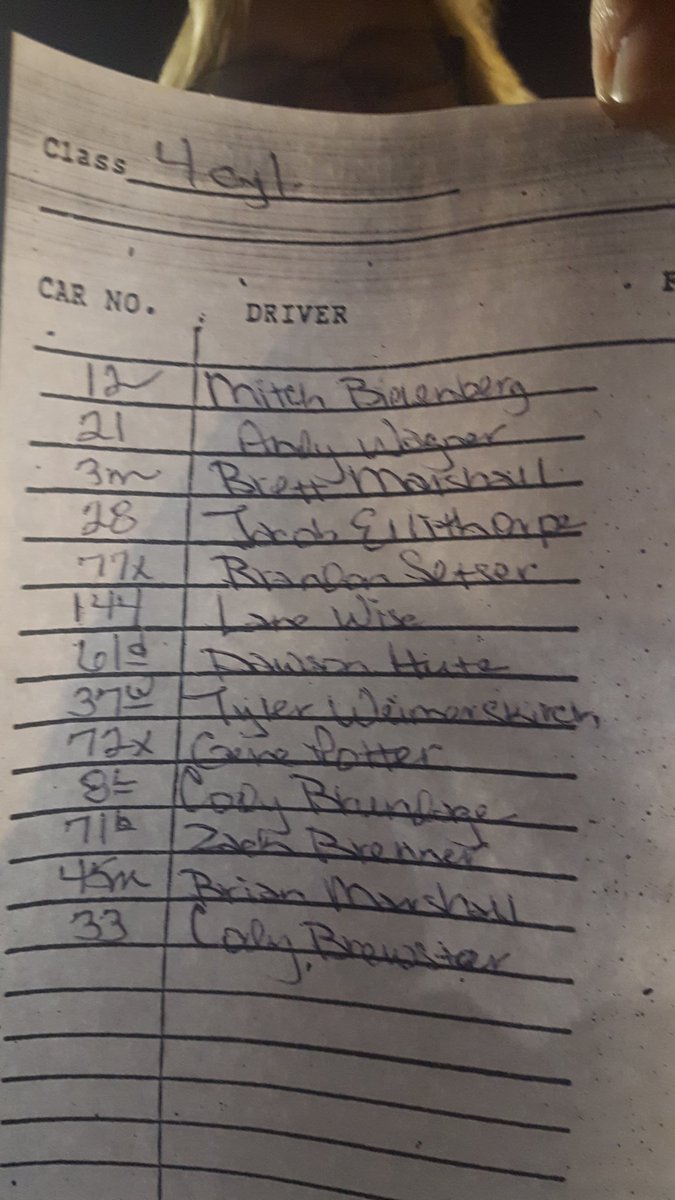 Class 4 cyl.
CAR NO. DRIVER
12 Mitch Bielenberg
21 Andy Wagner
3m Brett Marshall
28 Jacob Ellithorpe
77x Brandon Setser
144 Lane Wise
61d Dawson Hute
37w Tyler Weimerskirch
72x Gene Potter
8 Cody
71b Zach Brenner
45m Brian Marshall
33 Cody Brewster